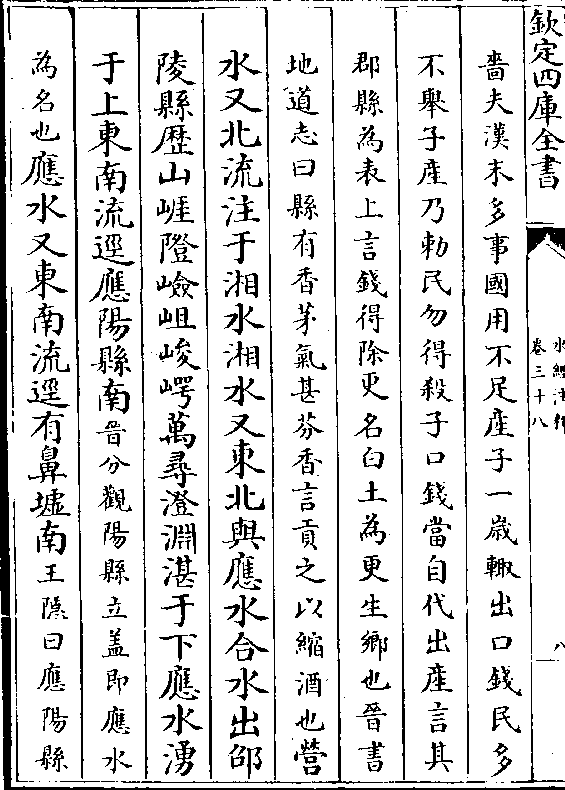 欽定四庫全書
水經注釋
卷三十八
八
嗇夫漢末多事國用不足産子一歳輙出口錢民多
不舉子産乃勅民勿得殺子口錢當自代出産言其
郡縣為表上言錢得除更名白土為更生鄉也晉書
地道志曰縣有香茅氣甚芬香言貢之以縮酒也營
水又北流注于湘水湘水又東北與應水合水出邵
陵縣歴山崕隥嶮岨峻崿萬尋澄淵湛于下應水湧
于上東南流逕應陽縣南晉分觀陽縣立盖即應水
為名也應水又東南流逕有鼻墟南王隠曰應陽縣